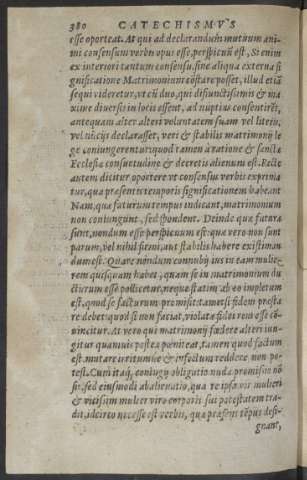 380 CATECHISMVS
esse oporteat. At qui ad declarandum mutuum ani-
mi consensum verbis opus esse, perspicuū est, Si enim
ex interiori tantum consensu, sine aliqua externa si
gnificatione Matrimonium cōstare posset, illud etiā
sequi videretur, vt cū duo, qui disiunctissimis & ma
xime diuersis in locis essent, ad nuptias consentirēt,
antequam alter alteri voluntatem suam vel literis,
vel nūcijs declarasset, veri & stabilis matrimonij le
ge coniungerentur: quod tamen à ratione & sanctæ
Ecclesiæ consuetudine & decretis alienum est. Recte
autem dicitur oportere vt consensus verbis exprima
tur, quæ præsentis temporis significationem habeant
Nam, quæ futurum tempus indicant, matrimonium
non coniungunt, sed spondent. Deinde quæ futura
sunt, nondum esse perspicuum est: quæ vero non sunt
parum, vel nihil firmi, aut stabilis habere existiman
dum est. Quare nondum connubij ius in eam mulie-
rem quisquam habet, quam se in matrimonium du
cturum esse pollicetur, neque statim ab eo impletum
est, quod se facturum promisit: tametsi fidem præsta
re debet: quod si non faciat, violatæ fidei reus esse cō
uincitur. At vero qui matrimonij fœdere alteri iun-
gitur quamuis postea pœniteat, tamen quod factum
est, mutare irritumue & infectum reddere non po-
test. Cum itaq́; coniugij obligatio nuda promissio nō
sit, sed eiusmodi abalienatio, qua re ipsa vir mulieri
& vicissim mulier viro corporis sui potestatem tra-
dit, idcirco necesse est verbis, quæ præsens tēpus desi-
gnant,